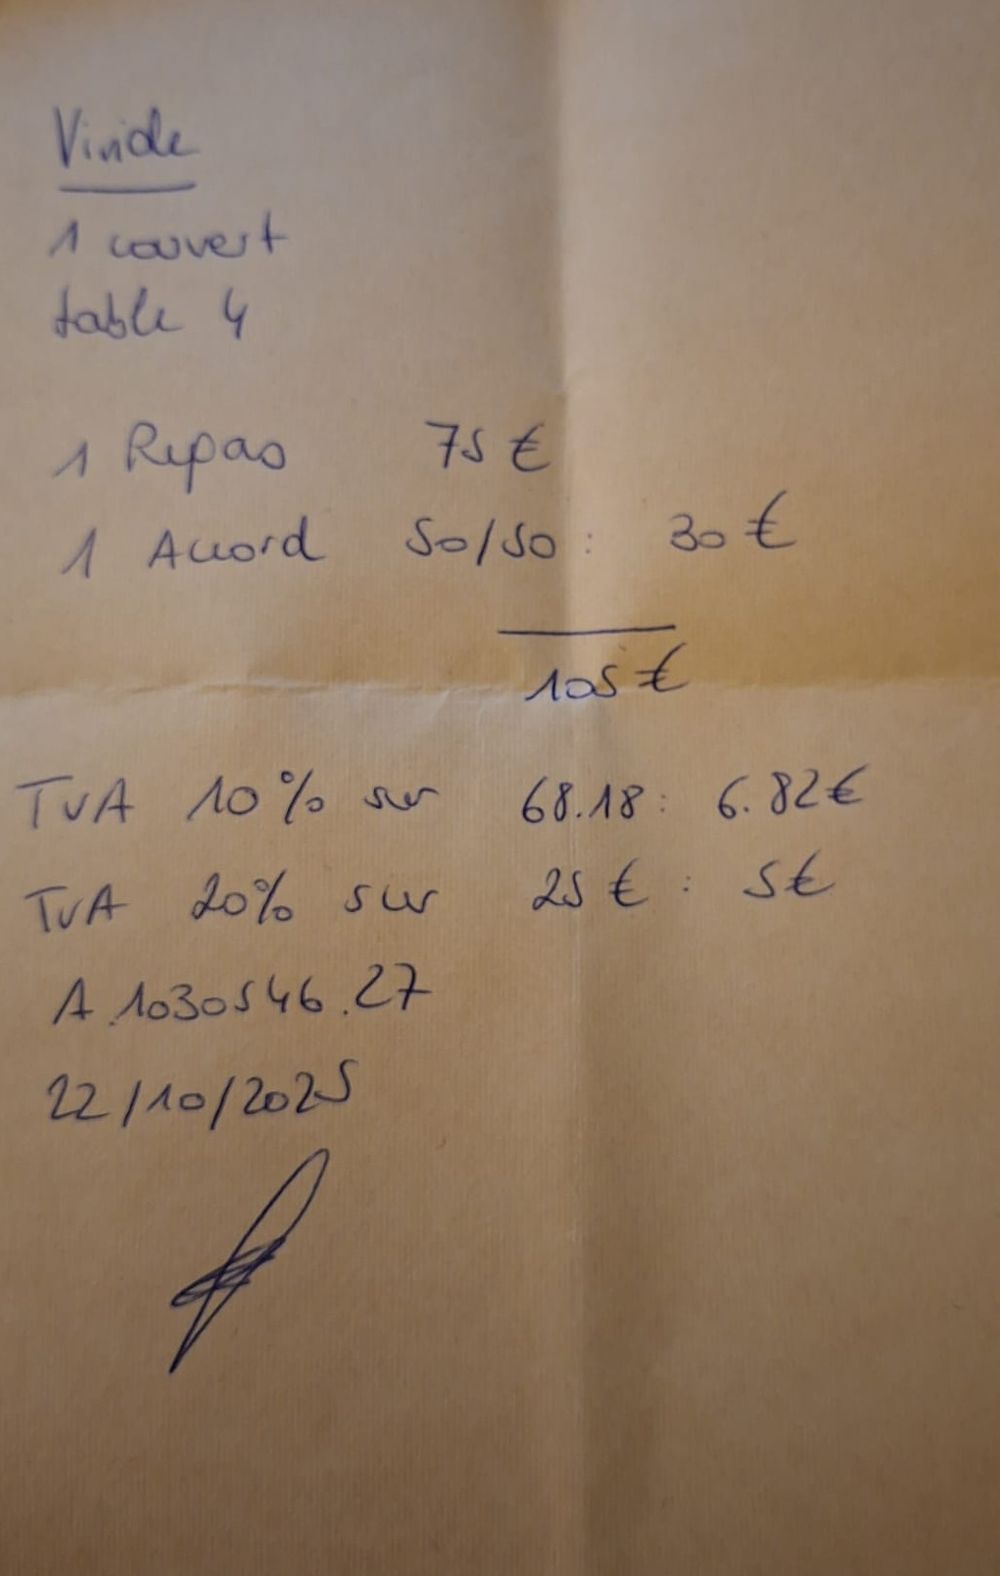 Vivide
1 couvert
table 4
1 Repas 75 €
1 Accord 50/50 : 30 €
105 €
TVA 10% sur 68.18 : 6.82€
TVA 20% sur 25 € : 5€
A.1030546.27
22/10/2025